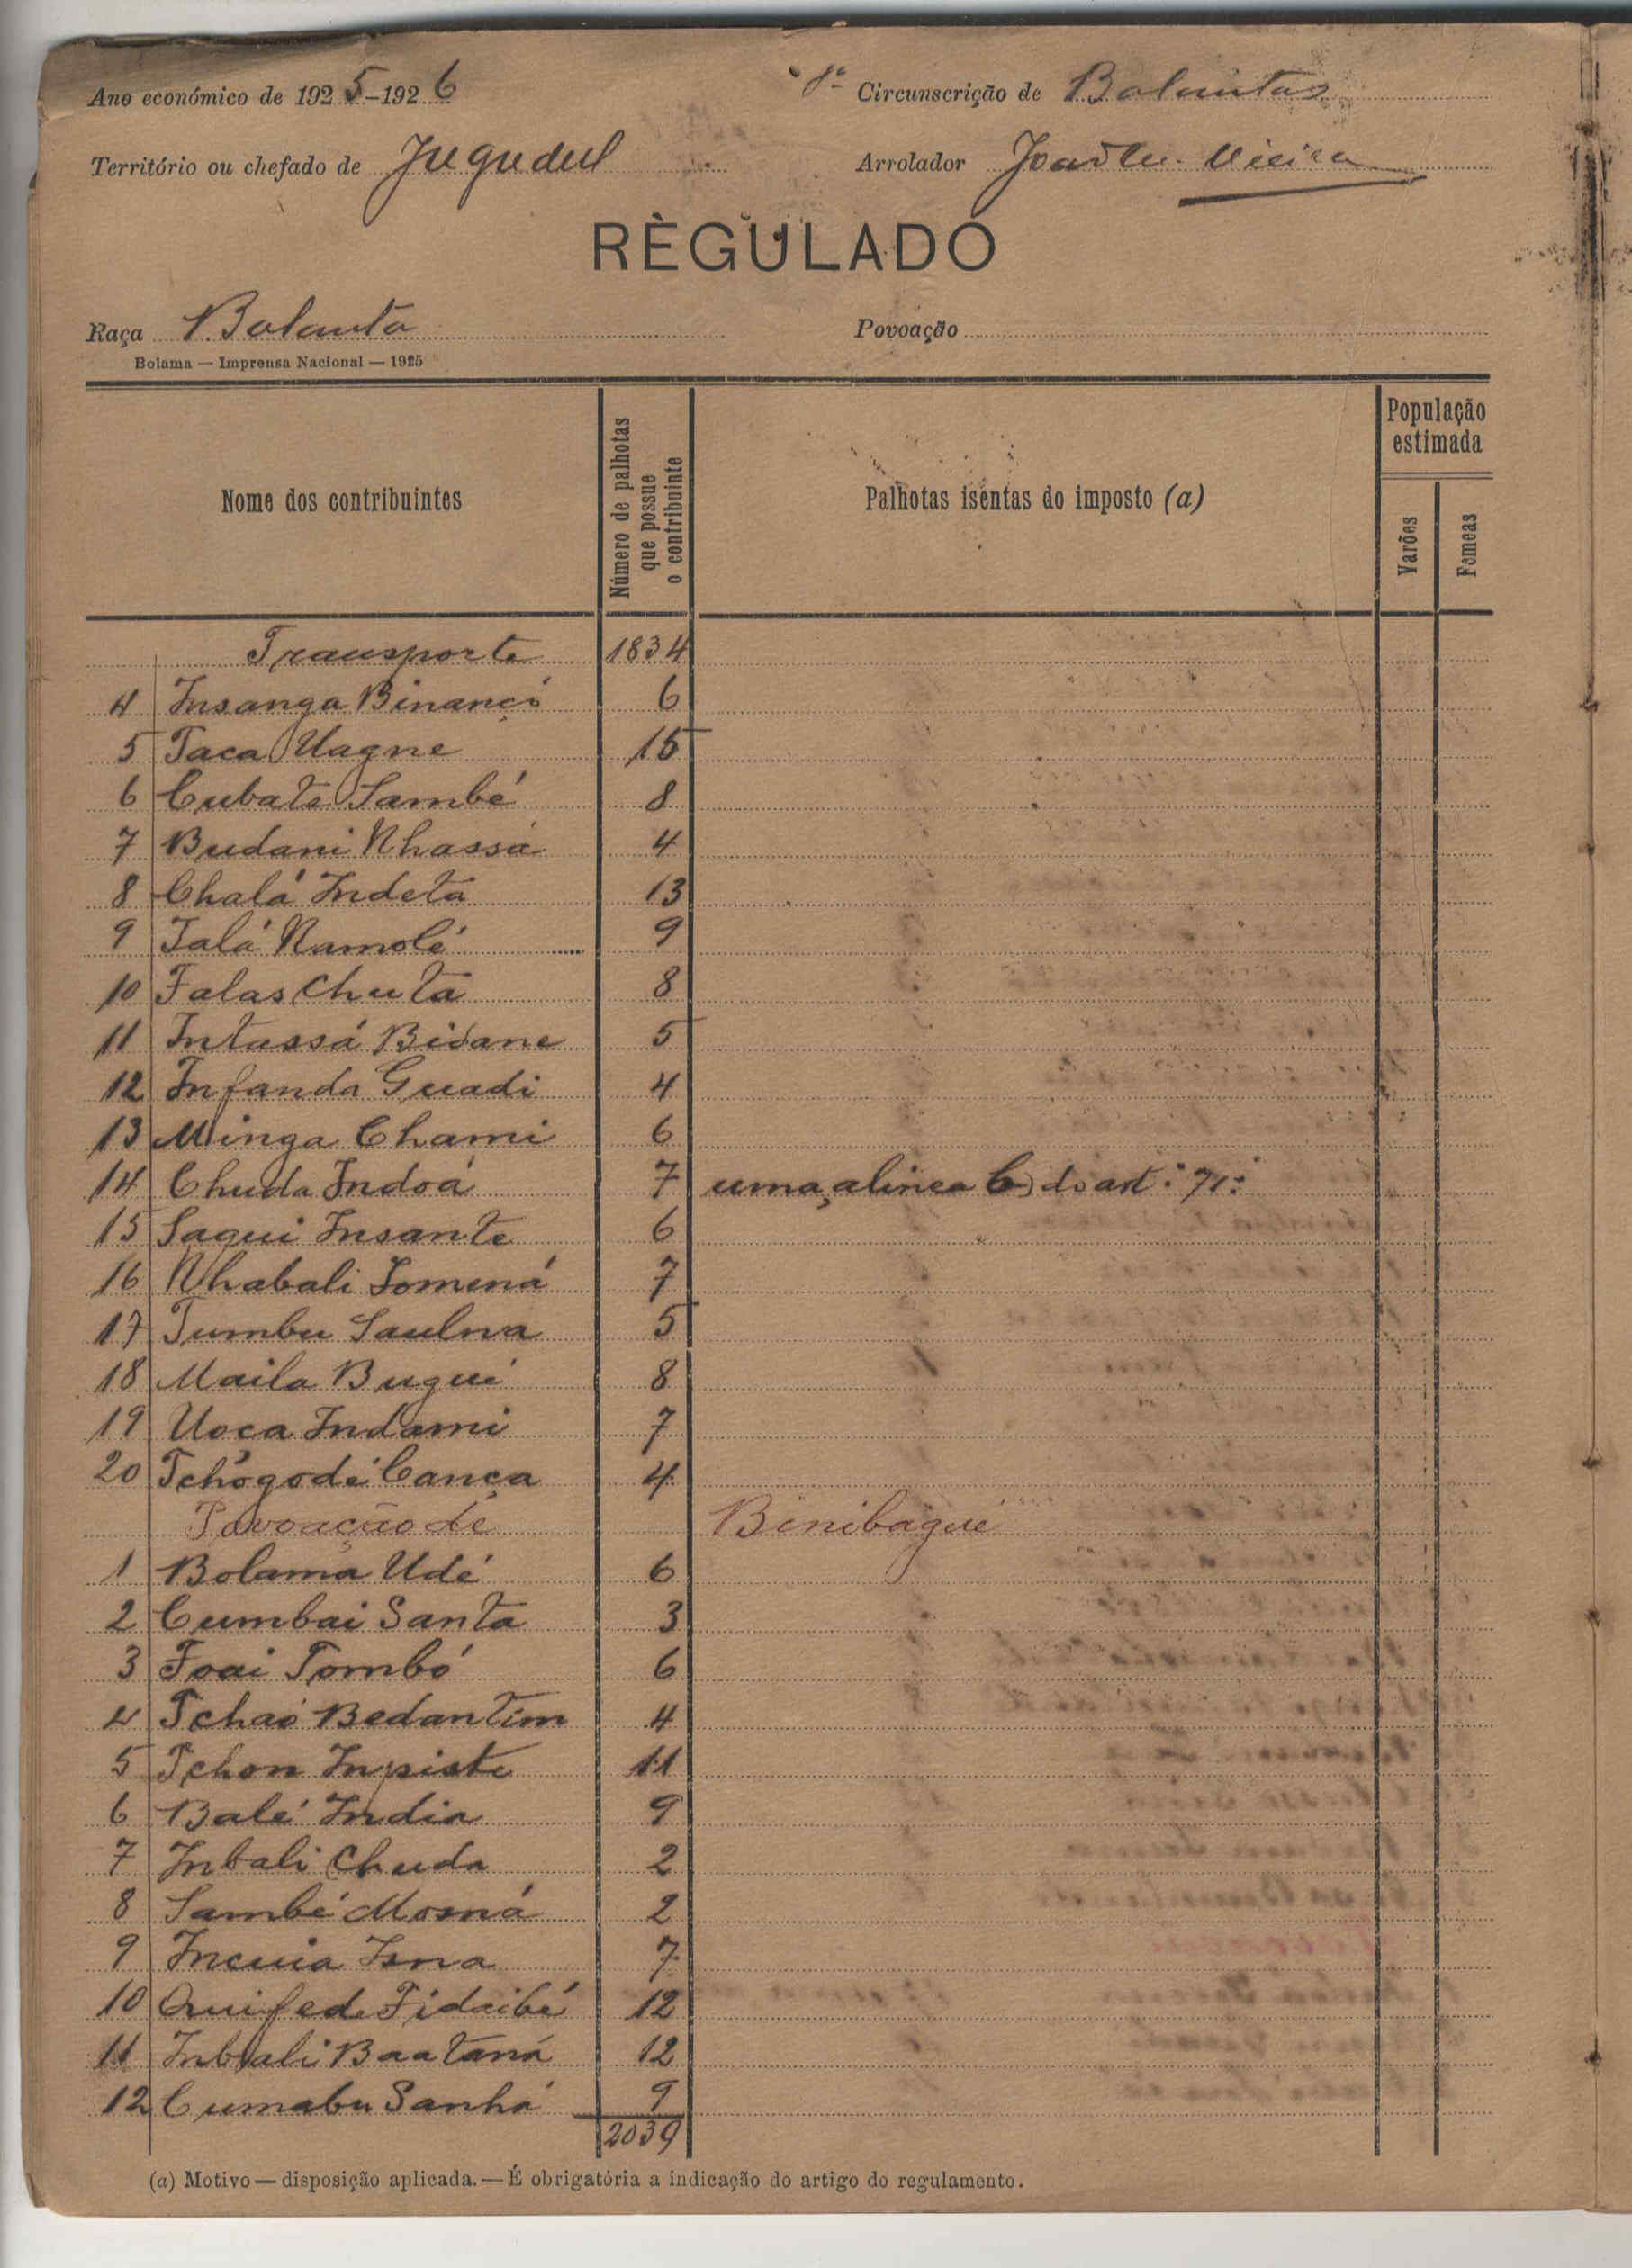 Ano económico de 1925-1926
Circunscrição de Balantas
Território ou chefado de Jugudul
Arrolador João M. Vieira
REGULADO
Raça Balanta
Povoação
Bolama — Imprensa Nacional — 1925
Nome dos contribuintes
Número de palhotas que possue o contribuinte
Palhotas isentas do imposto (a)
População estimada
Varões
Femeas
Transporte 1834
4 Insanga Binançó 6
5 Taca Uagne 15
6 Cubate Sambé 8
7 Budani Nhassá 4
8 Chalá Indeta 13
9 Jalá Namolé 9
10 Falas Chuta 8
11 Intassá Bidane 5
12 Infanda Guadi 4
13 Minga Chami 6
14 Chuda Indoá 7 uma, alinea b) do art. 71.
15 Saqui Insante 6
16 Nhabali Tomená 7
17 Tumbu Saulna 5
18 Maila Bugui 8
19 Uoca Indami 7
20 Tchogodé Canca 4
Povoação de Binibagué
1 Bolama Udé 6
2 Cumbai Santa 3
3 Foai Tombó 6
4 Tchaó Bedantim 4
5 Tchon Inpiste 11
6 Balé India 9
7 Inbali Chuda 2
8 Sambé Mosná 2
9 Incuia Isna 7
10 Quifede Fidaibé 12
11 Inbali Baataná 12
12 Cumabu Sanhá 9
2039
(a) Motivo — disposição aplicada. — É obrigatória a indicação do artigo do regulamento.